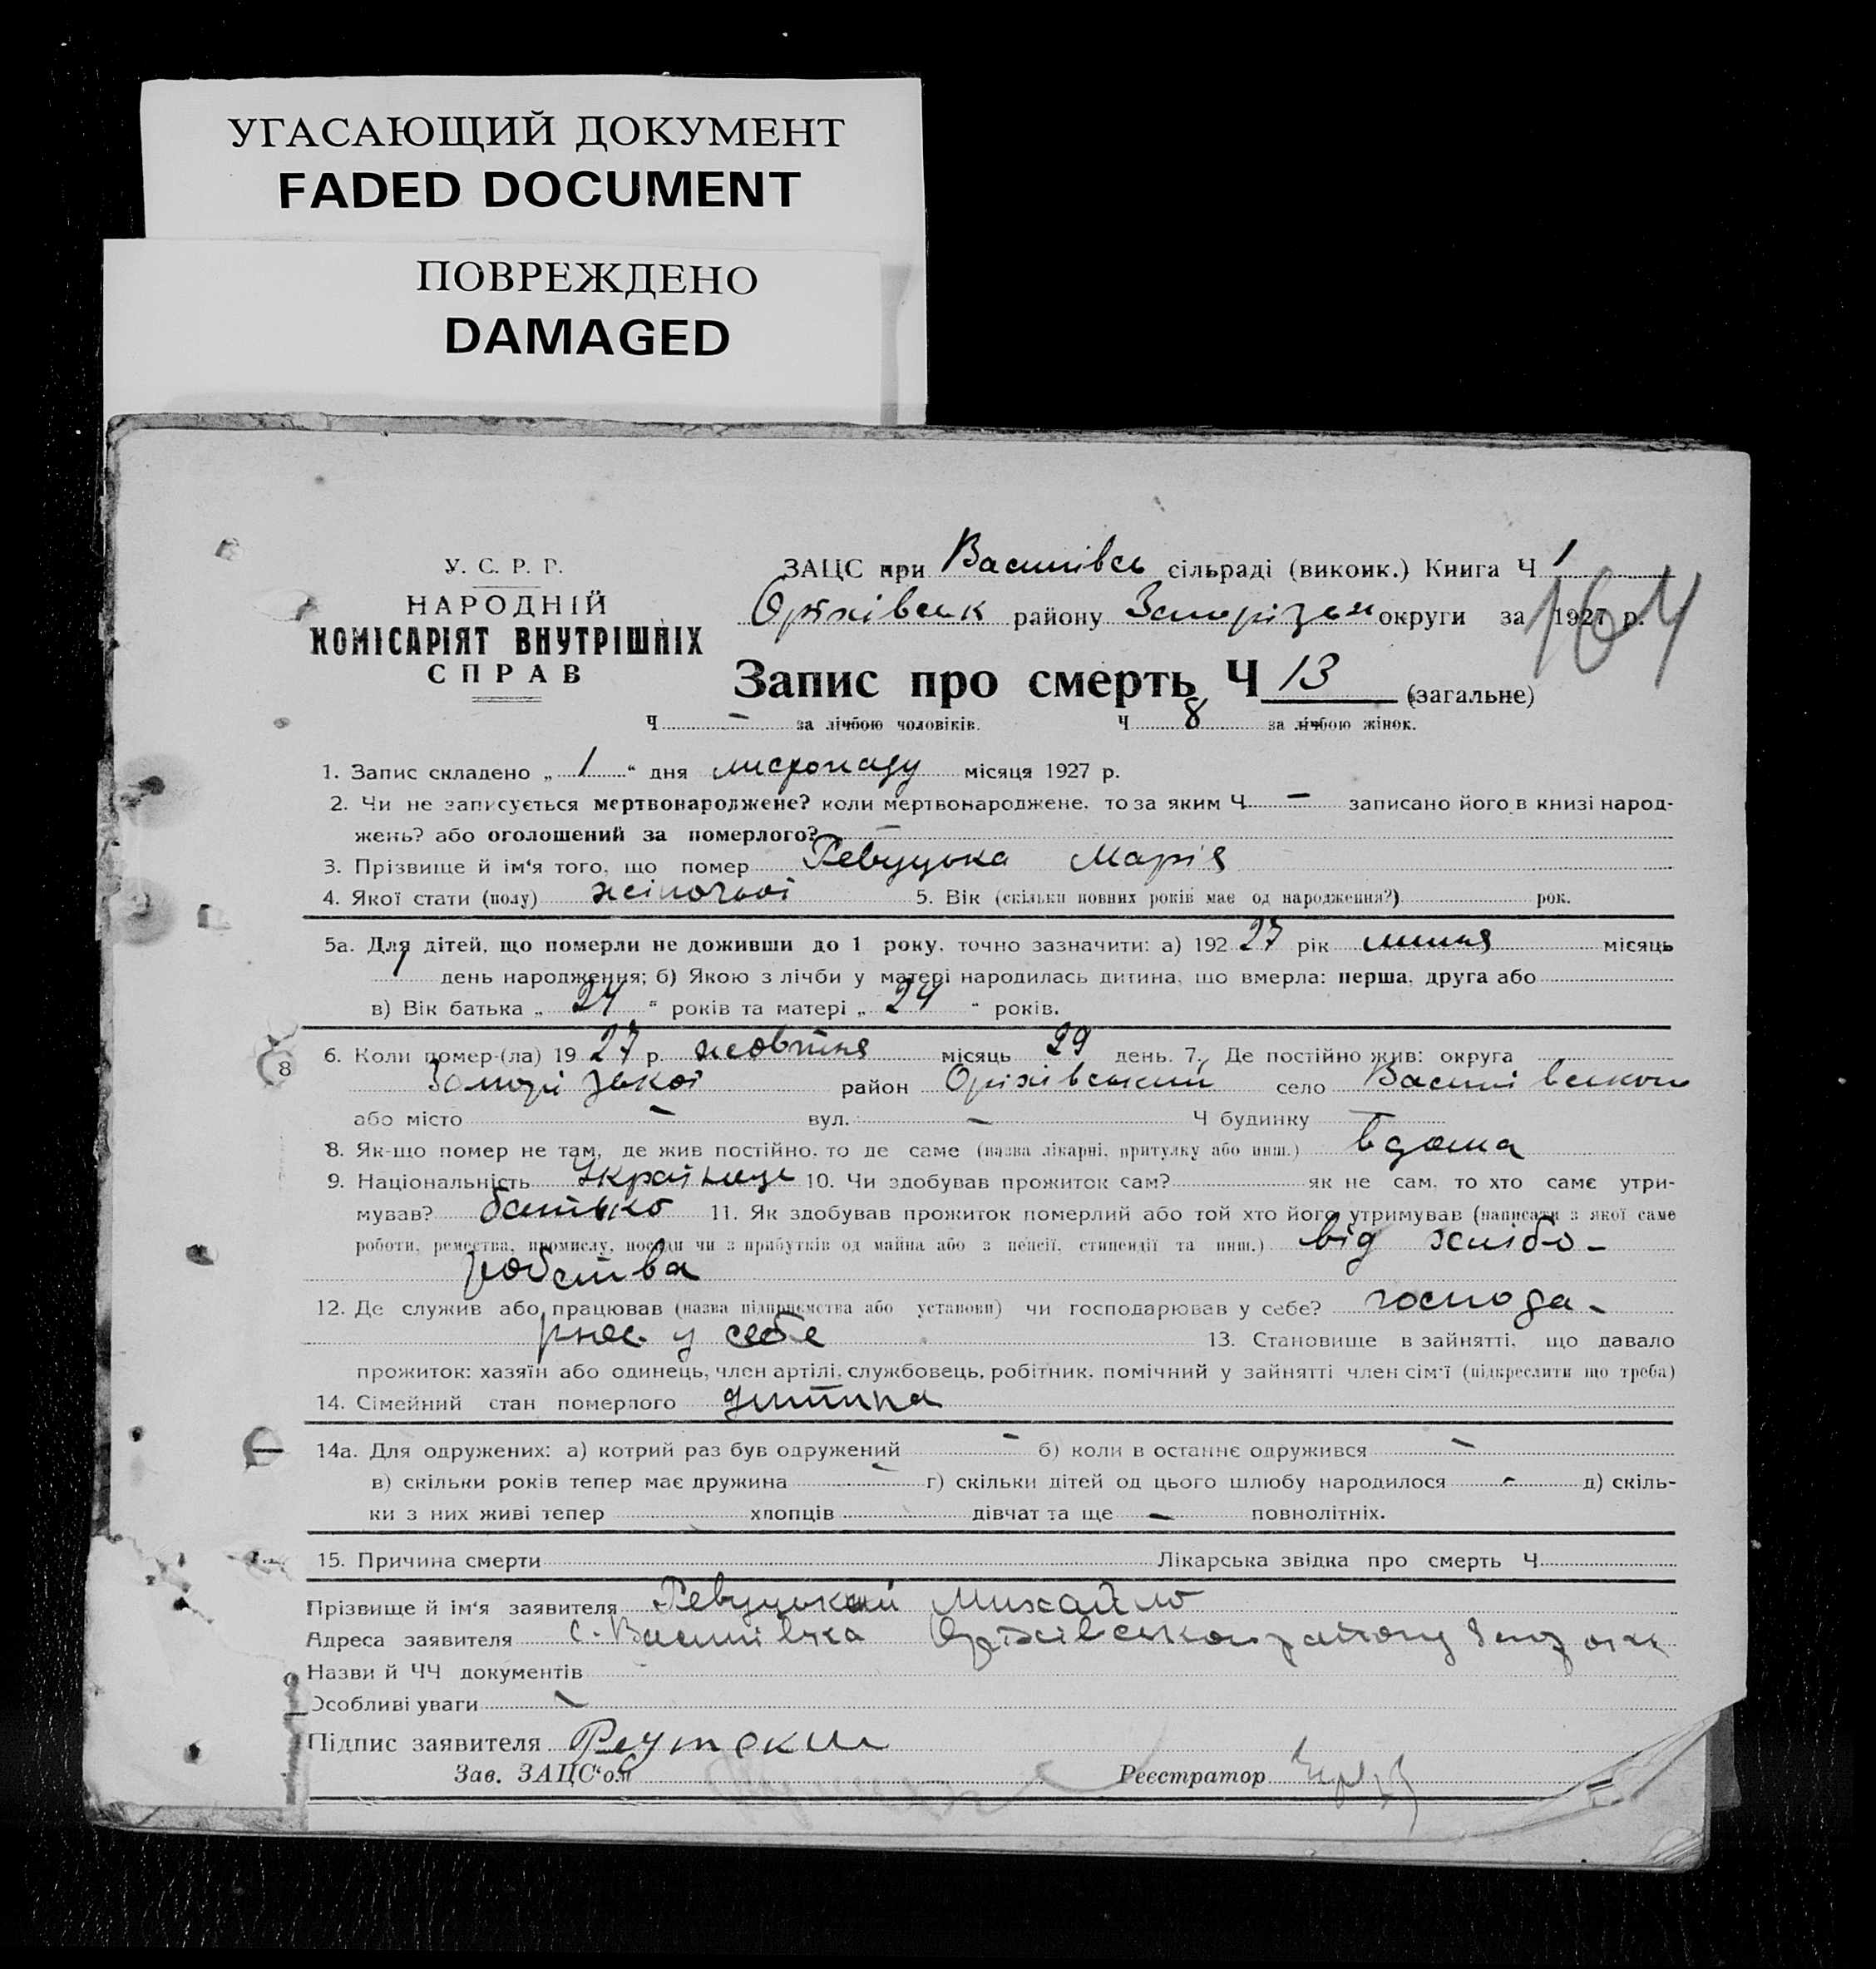 УГАСАЮЩИЙ ДОКУМЕНТ
FADED DOCUMENT
ПОВРЕЖДЕНО
DAMAGED
У. С. Р. Р.
НАРОДНІЙ
КОМІСАРІЯТ ВНУТРІШНІХ
СПРАВ
ЗАЦС при Василівсь сільраді (викоик.) Книга Ч 1
Оріхівськ району округи за 1927 р.
164
Запис про смерть Ч 13 (загальне)
Ч – за лічбою чоловіків. Ч 8 за лічбою жінок.
1. Запис складено „ 1 “ дня листопаду місяця 1927 р.
2. Чи не записується мертвонароджене? коли мертвонароджене, то за яким Ч – записано його в книзі народ-
жень? або оголошений за померлого? –
3. Прізвище й ім'я того, що помер Ревуцька Марія
4. Якої стати (полу) жіночої 5. Вік (скільки повних років має од народження?) рок.
5а. Для дітей, що померли не доживши до 1 року, точно зазначити: а) 192 27 рік липня місяць
1 день народження; б) Якою з лічби у матері народилась дитина, що вмерла: перша, друга або
в) Вік батька „ 24 “ років та матері „ 24 “ років.
6. Коли помер-(ла) 19 27 р. жовтня місяць 29 день. 7. Де постійно жив: округа
8
Запорізької район Оріхівський село
або місто – вул. – Ч будинку –
8. Як-що помер не там, де жив постійно, то де саме (назва лікарні, притулку або инш.) вдома
9. Національність Українці 10. Чи здобував прожиток сам? як не сам, то хто саме утри-
мував? батько 11. Як здобував прожиток померлий або той хто його утримував (написати з якої саме
роботи, ремества, промислу, посади чи з прибутків од майна або з пенсії, стипендії та инш.) від хлібо-
робства
12. Де служив або працював (назва підприємства або установи) чи господарював у себе? господа-
рює у себе 13. Становище в зайнятті, що давало
прожиток: хазяїн або одинець, член артілі, службовець, робітник, помічний у зайнятті член сім'ї (підкреслити що треба)
14. Сімейний стан померлого дитина
14а. Для одружених: а) котрий раз був одружений – б) коли в останнє одружився –
в) скільки років тепер має дружина – г) скільки дітей од цього шлюбу народилося – д) скіль-
ки з них живі тепер хлопців дівчат та ще – повнолітніх.
15. Причина смерти Лікарська звідка про смерть Ч
Прізвище й ім'я заявителя Ревуцький Михайло
Адреса заявителя с. Василівка Оріхівського району
Назви й ЧЧ документів
Особливі уваги –
Підпис заявителя
Зав. ЗАЦС'ом Реєстратор